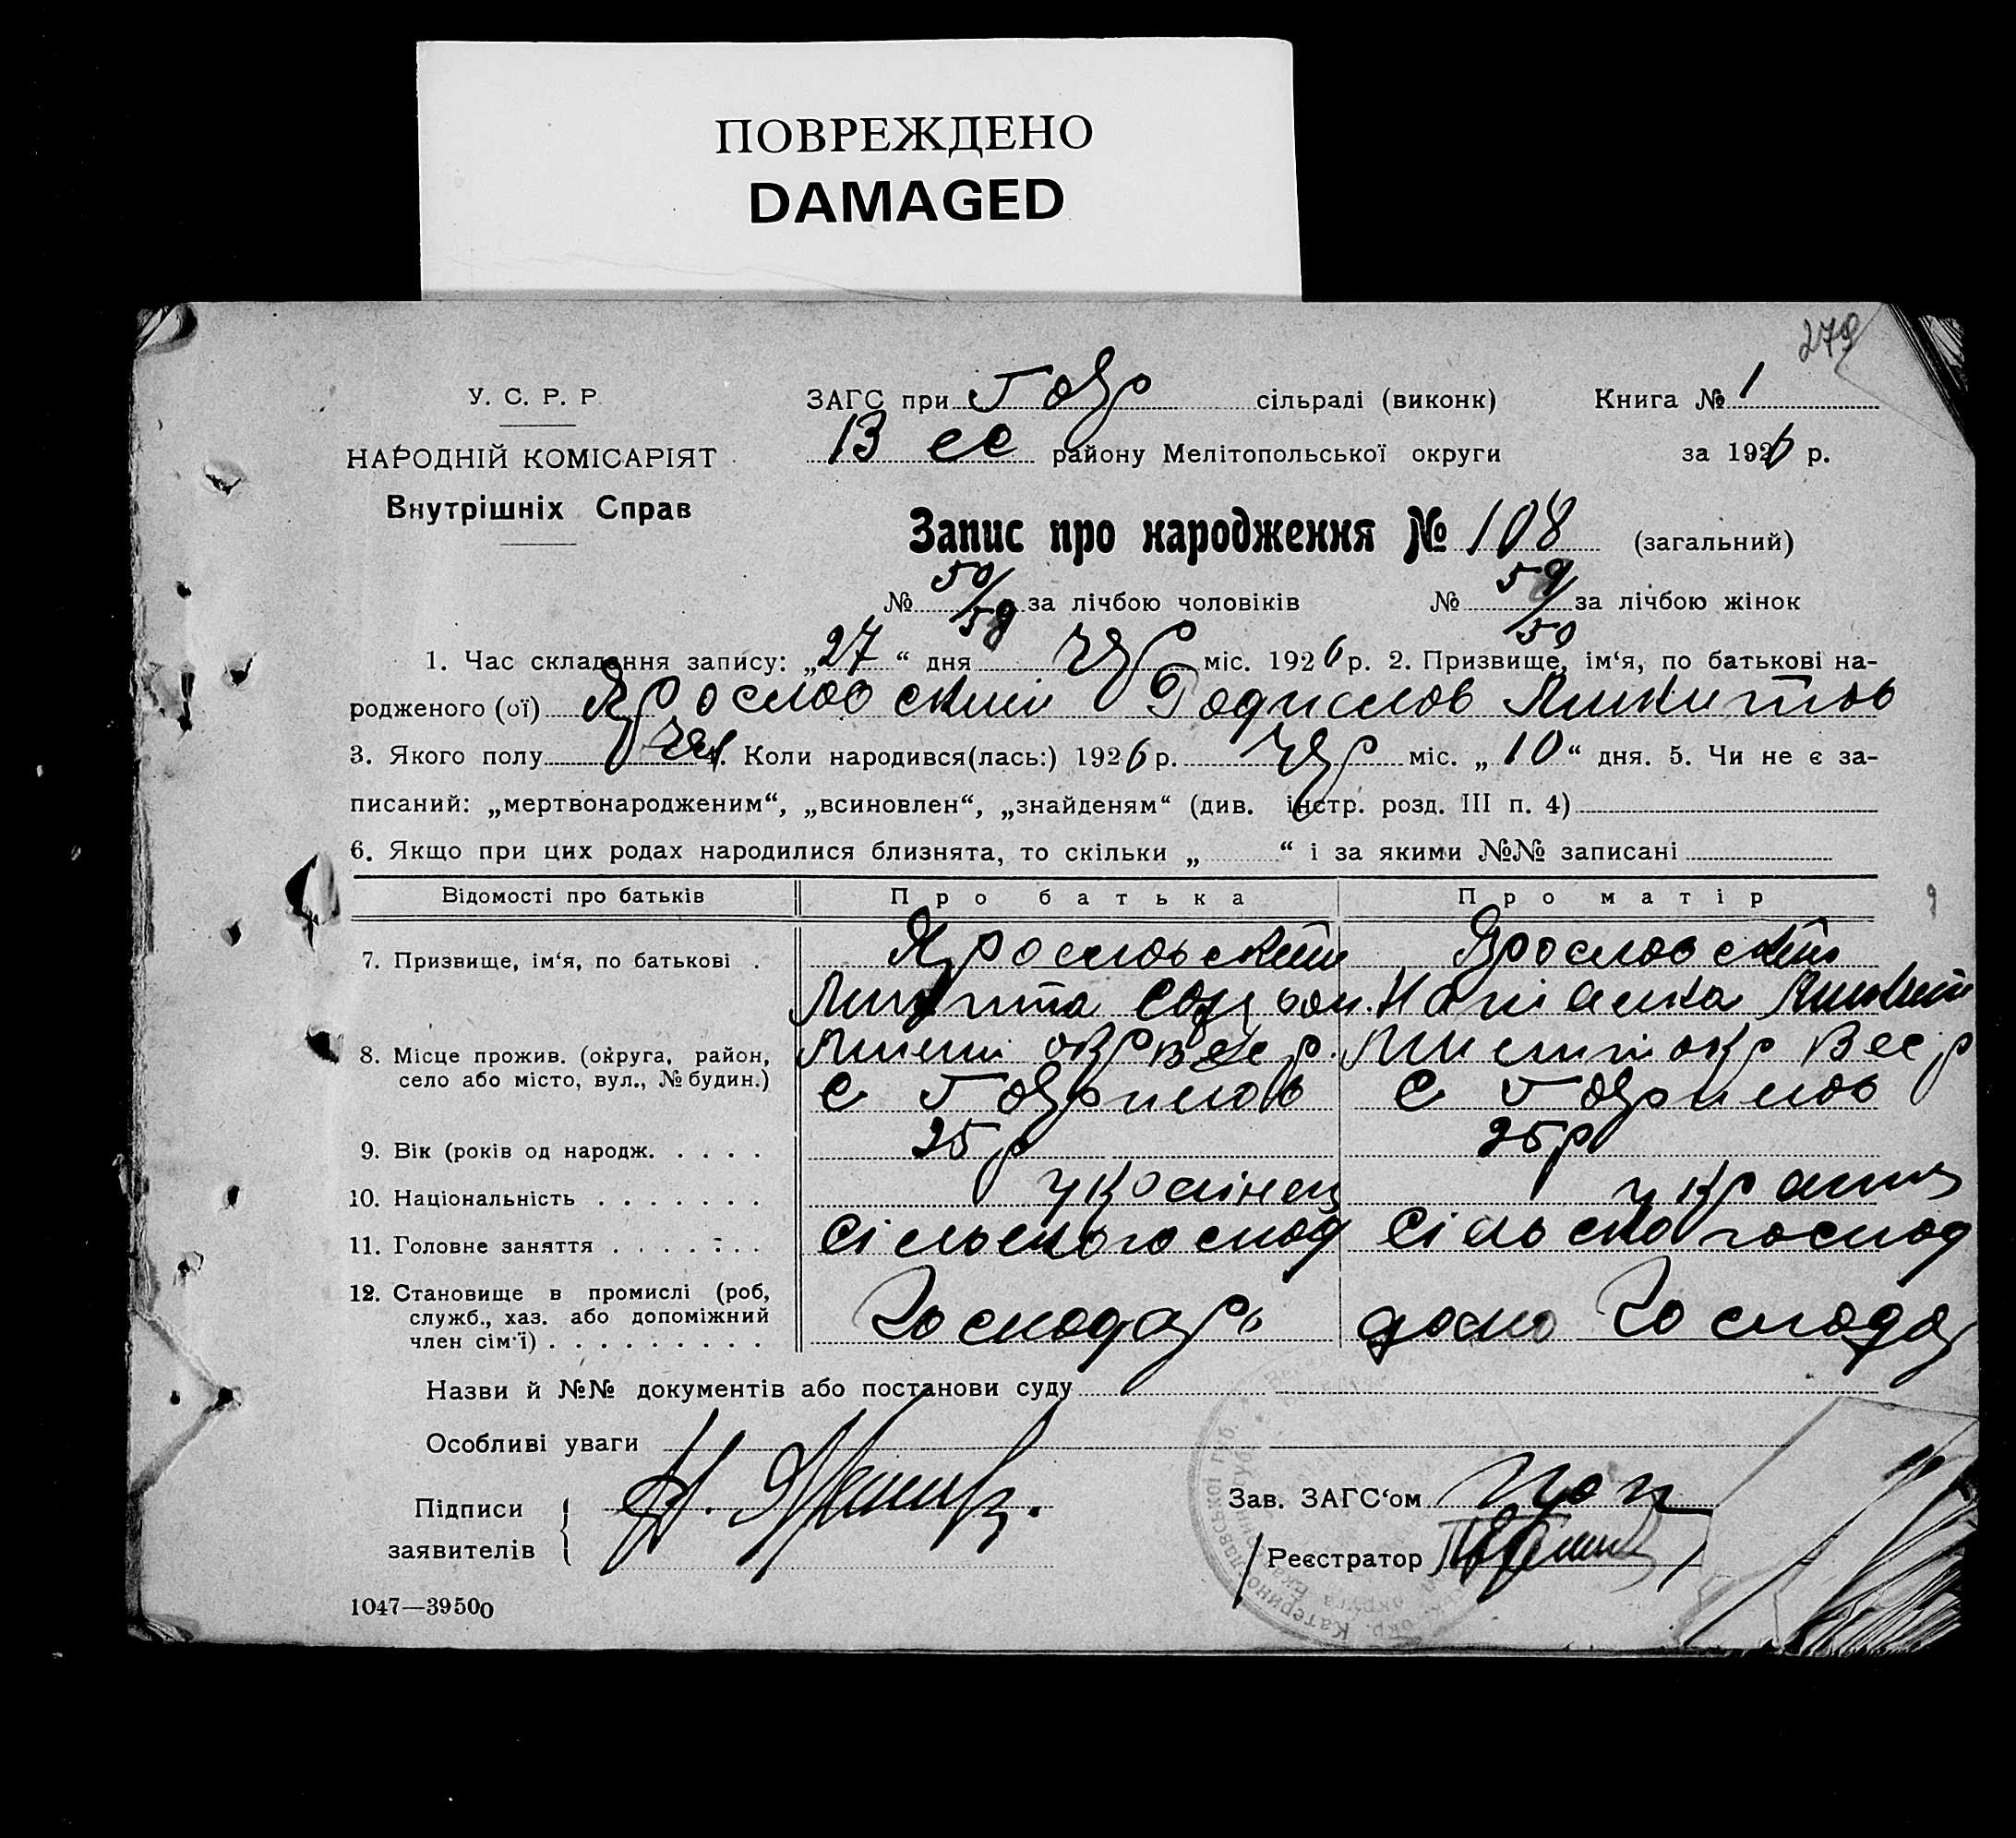 ПОВРЕЖДЕНО
DAMAGED
279
У. С. Р. Р.
НАРОДНІЙ КОМІСАРІЯТ
Внутрішніх Справ
ЗАГС при Гавр сільраді (виконк) Книга № 1
В ес району Мелітопольської округи за 1926 р.
Запис про народження № 108 (загальний)
№ 50/59 за лічбою чоловіків № 59/50 за лічбою жінок
1. Час складання запису: „27“ дня міс. 1926 р. 2. Призвище, ім‘я, по батькові на-
родженого (ої) Ярославский Микитов
3. Якого полу 4. Коли народився(лась:) 1926 р. міс. „10“ дня. 5. Чи не є за-
писаний: „мертвонародженим“, „всиновлен“, „знайденям“ (див. інстр. розд. III п. 4)
6. Якщо при цих родах народилися близнята, то скільки „ “ і за якими №№ записані
Відомості про батьків Про батька Про матір
7. Призвище, ім‘я, по батькові . Ярославский Ярославский
Микита
8. Місце прожив. (округа, район, окр Вес р. окр Вес р
село або місто, вул., № будин.) с Гаврилов с Гаврилов
9. Вік (років од народж. . . . . 25 р 25 р
10. Національність . . . . . . . україінец украин
11. Головне заняття . . . . . . . сільськогоспод сільскогоспод
12. Становище в промислі (роб, служб., хаз. або допоміжний член сім‘ї) . . . . . . . . . Господарь Господар
Назви й №№ документів або постанови суду
Особливі уваги
Підписи
заявителів
Зав. ЗАГС‘ом
Реєстратор
1047—39500